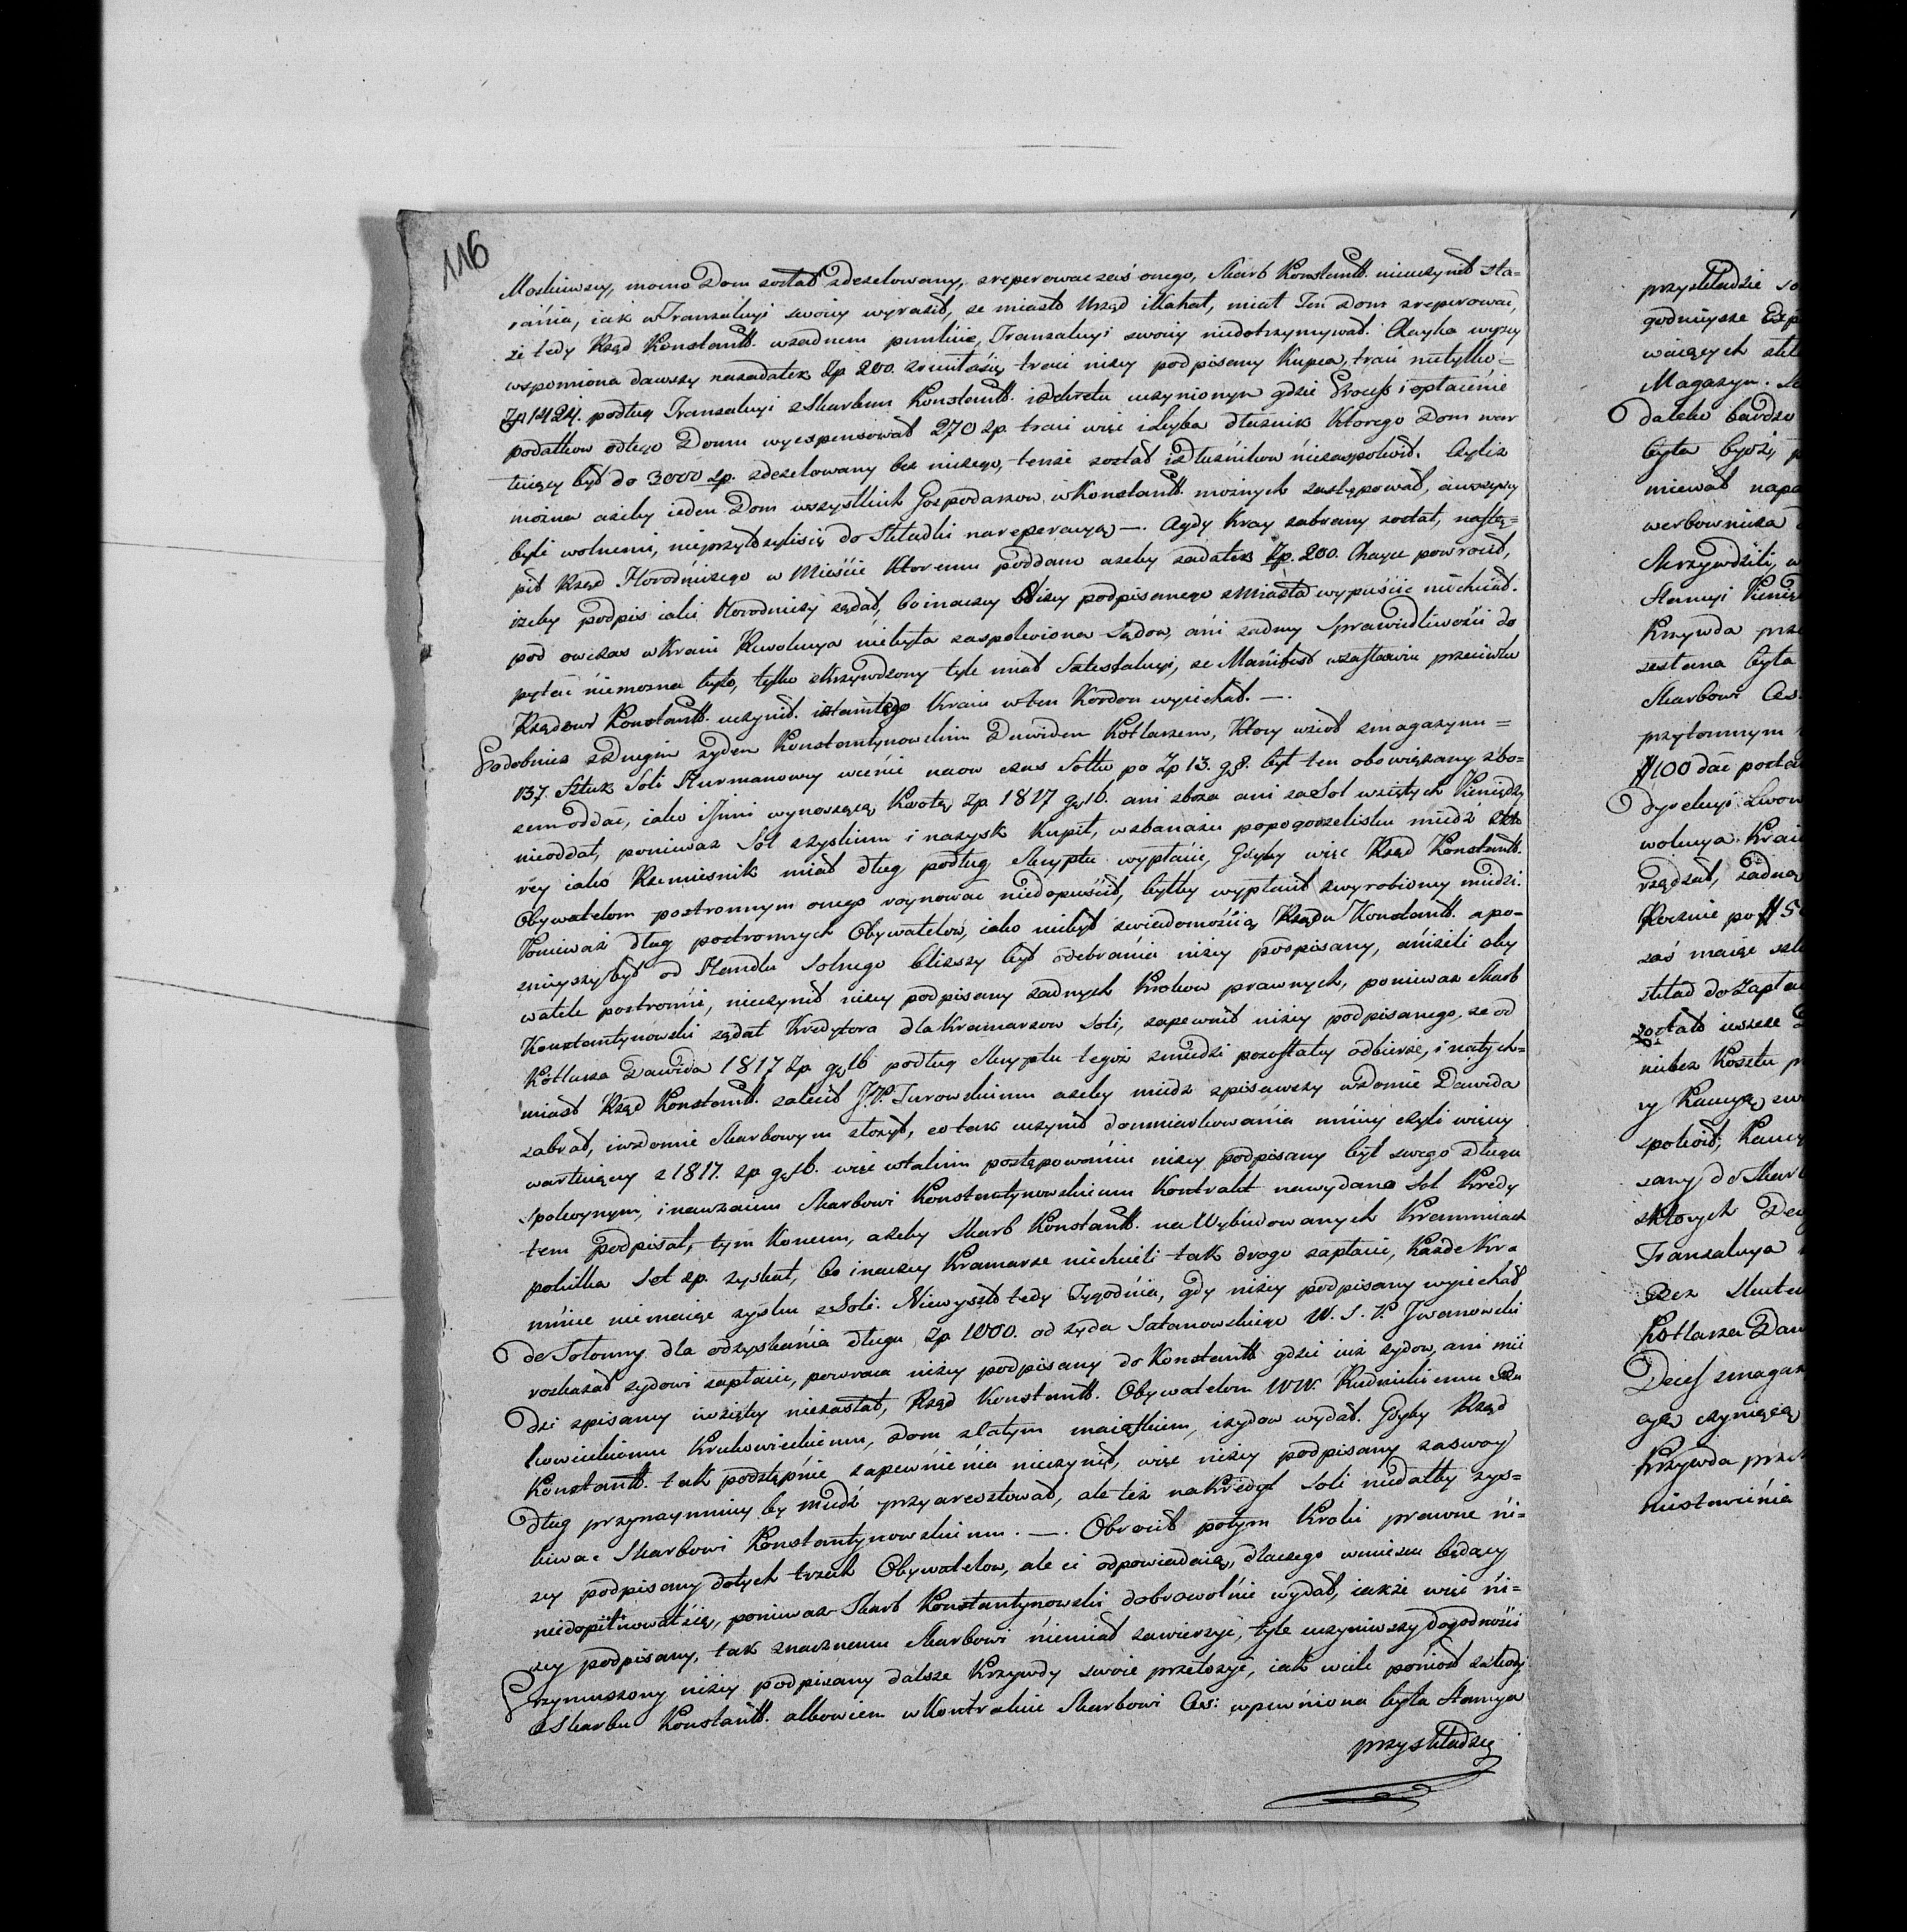 116
Moskiewscy, mocno Dom został zdezelowany, zreperować zaś onego, Skarb Konstantt. nieuczynił sta=
rania, iak w Tranzakcyi swoiey wyraził, że miasto Urząd i Kahał, miał Ten Dom zreperować,
że tedy Rząd Konstantt. w żadnem punkcie, Tranzakcyi swoiey niedotrzymywał. Chayka wyżey
wspomniona dawszy na zadatek Zp 200. traci niżey podpisany Kupca, traci nietylko=
Zp 1424. podług Tranzakcyi z Skarbem Konstantt. i dekretu uczynionym gdzie Process i opłacenie
podatkow od tego Domu wyexpensował 270 zp. traci więc i Leyba dłużnik Ktorego Dom war
tuiący był do 3000 zp. zdezelowany bez niczego, tenże został i dłużnikow niezaspokoił. Czyliz
można ażeby ieden Dom wszystkich Gospodarzow w Konstantt. możnych zastępował, a wszyscy
byli wolnemi, nieprzyłożylisię do Składki na reperacyą —. A gdy Kray zabrany został, nastą=
pił Rząd Horodniczego w Mieście Ktoremu poddano ażeby zadatek Zp. 200. Chayce powrocił,
iżeby podpis iaki Horodniczy żądał, bo inaczey niżey podpisanego z Miasta wypuścić niechciał.
pod owczas w Kraiu Rewolucya niebyła zaspokoiona Sądow, ani żadney Sprawiedliwości do
pytać niemożna było, tylko skrzywdzony tyle miał Satesfakcyi, że Manifest w Zasławiu przeciwko
Rządowi Konstantt. uczynił. i z tamtego Kraiu w ten Kordon wyiechał. —.
Podobnież z drugim żydem Konstantynowskim Dawidem Kotlarzem, Ktory wzioł z magazynu=
137. Sztuk Soli Hurmanowey w cenie na ow czas Sołtu po Zp 13. g. 8. był ten obowiązany zbo=
żem oddać, iako i Jnni wynoszącą Kwotę Zp. 1817 g. 16. ani zboża ani za Sol wziętych Pieniędzy
nieoddał, ponieważ Sol z zyskiem i na zysk Kupił, w zbanażu popogorzelisku miedź
rey iako Rzemieśnik miał dług podług Skryptu wypłacić, Gdyby więc Rząd Konstantt.
Obywatelom postronnym onego roynować niedopuścił, byłby wypłacił z wyrobioney miedzi.
Ponieważ dług postronnych Obywatelow, iako niebył z wiadomością Rządu Konstantt. apo=
źnieyszy był od Handlu Solnego bliższy był odebrania niżey podpisany, aniżeli oby
watele postronni, nieczynił niżey podpisany żadnych Krokow prawnych, ponieważ Skarb
Konstantynowski żądał Kredytora dla Kramarzow Soli, zapewnił niżey podpisanego, że od
Kotlarza Dawida 1817 Zp g. 16 podług Skryptu tegoż z miedzi pozostałey odbierze, i natych=
miast Rząd Konstantt. zalecił J. P. Turowskiemu ażeby miedź spisawszy w domie Dawida
zabrał, i w domie Skarbowym złożył, co tak uczynił do miarkowania mniey czyli więcey
wartuiącey z 1817. zp g. 16. więc w takim postępowaniu niżey podpisany był swego długu
spokoynym, i nawzaiem Skarbowi Konstantynowskiemu Kontrakt na wydanie Sol Kredy
tem podpisał, tym Koncem, ażeby Skarb Konstantt. na Wybudowanych Kramnicach
pokilka Set zp. zyskał, bo inaczey Kramarze niechcieli tak drogo zapłacić, Każde Kra
mnice nie maiąc zysku z Soli. Niewyszło tedy Tygodnia, gdy niżey podpisany wyiechał
do Sołomny dla odzyskania długu Zp 1000. od żyda Satanowskiego W. J. P. Jwanowski
roskazał żydowi zapłacić, powraca niżey podpisany do Konstantt gdzie iuż żydow, ani mie
dzi spisaney i wziętey niezastał, Rząd Konstantt. Obywatelom WW. Rudnickiemu
Krukowieckiemu, Dom z całym maiątkiem, i żydow wydał. Gdyby Rząd
Konstantt. tak podstępnie zapewnienia nieczynił, więc niżey podpisany za swoy
Dług przynaymniey by miedź przyaresztował, ale też na Kredyt Soli niedałby zys=
kiwać Skarbowi Konstantynowskiemu. —. Obrocił potym Kroki prawne ni=
żey podpisany do tych trzech Obywatelow, ale ci odpowiadaią, dlaczego w mieście będący
niedopilnowałsię, ponieważ Skarb Konstantynowski dobrowolnie wydał, iakże więc ni=
żey podpisany, tak znacznemu Skarbowi niemiał zawierzyć, tyle uczyniwszy dogodności
Przymuszony niżey podpisany dalsze Krzywdy swoie przełożyć, iak wiele poniosł szkody
z Skarbu Konstantt. albowiem w Kontrakcie Skarbowi Ces: upewniona była Stancya
przyskładzie
przyskładzie
godnieysze
Magazyn.
daleko bardzo
była
miewał
werbownicza
Skrzywdzili,
Stancyi
Krzywda
zesłana była
Skarbowi Ces
przytomnym
100 dać
Rocznie po
zaś maiąc
skład do Zapła
został ieszcze
niebez Kosztu
spokoił,
Tranzakcya
Bez
Kotlarza Daw
Krzywda